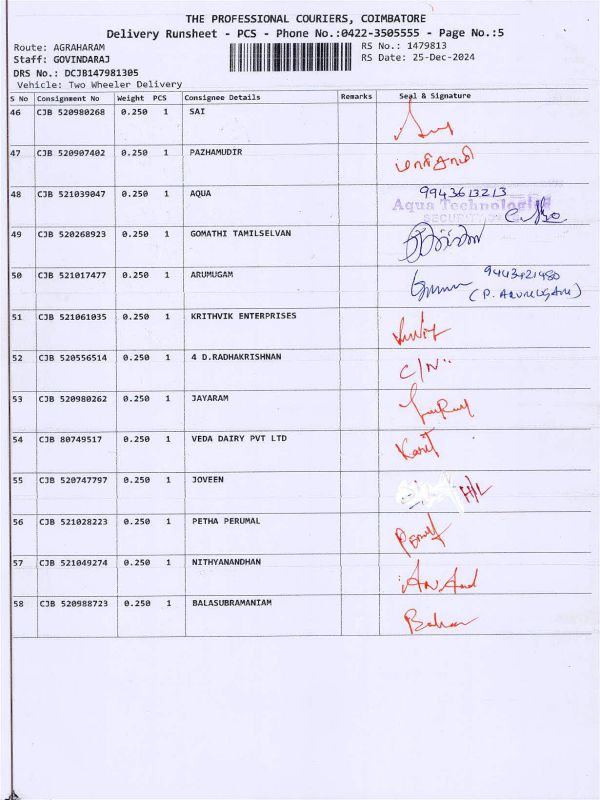 THE PROFESSIONAL COURIERS, COIMBATORE
Delivery Runsheet - PCS - Phone No.:0422-3505555 - Page No.:5
Route: AGRAHARAM
RS No.: 1479813
Staff: GOVINDARAJ
RS Date: 25-Dec-2024
DRS No.: DCJB147981305
Vehicle: Two Wheeler Delivery
S No Consignment No Weight PCS Consignee Details Remarks Seal & Signature
46 CJB 520980268 0.250 1 SAI
47 CJB 520907402 0.250 1 PAZHAMUDIR
48 CJB 521039047 0.250 1 AQUA 9943613213
Aqua Technologies
SECURITY
49 CJB 520268923 0.250 1 GOMATHI TAMILSELVAN
50 CJB 521017477 0.250 1 ARUMUGAM 9443421480
(P. ARUMUGAM)
51 CJB 521061035 0.250 1 KRITHVIK ENTERPRISES
52 CJB 520556514 0.250 1 4 D.RADHAKRISHNAN C/N
53 CJB 520980262 0.250 1 JAYARAM
54 CJB 80749517 0.250 1 VEDA DAIRY PVT LTD
55 CJB 520747797 0.250 1 JOVEEN H/L
56 CJB 521028223 0.250 1 PETHA PERUMAL
57 CJB 521049274 0.250 1 NITHYANANDHAN
58 CJB 520988723 0.250 1 BALASUBRAMANIAM